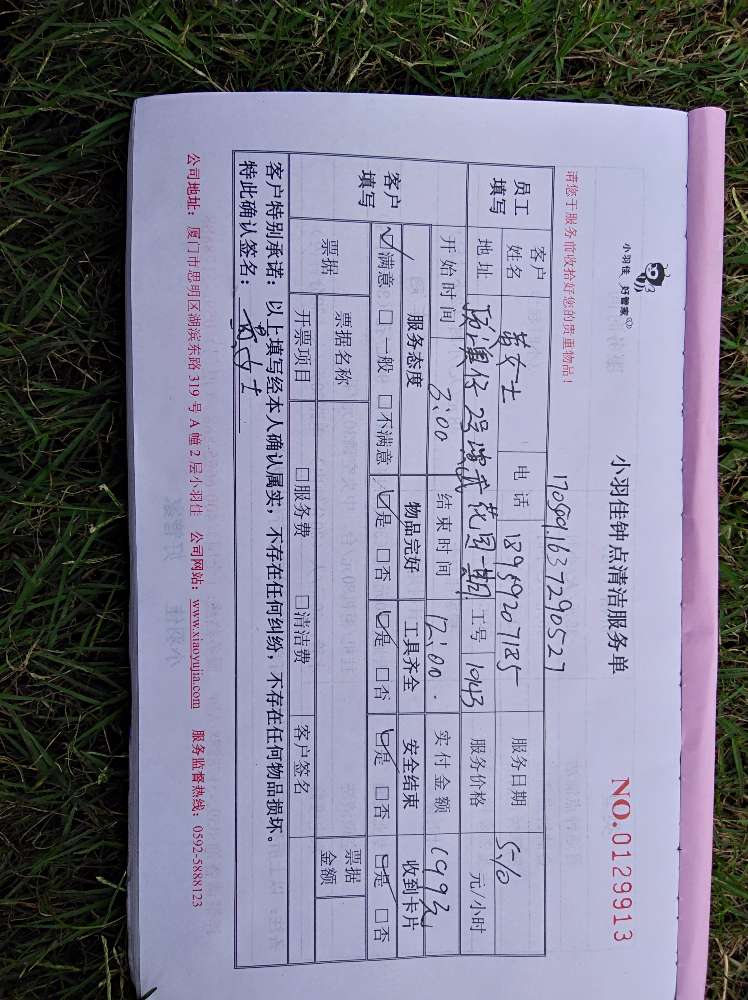 小羽佳 好管家®
小羽佳钟点清洁服务单
NO.0129913
请您于服务前收拾好您的贵重物品!
员工填写
客户姓名
女士
电话
18959207185
服务日期
5.10
地址
花园一期
工号
1043
服务价格
元/小时
开始时间
结束时间
12:00
实付金额
199元
客户填写
服务态度
物品完好
工具齐全
安全结束
收到卡片
☑满意 □一般 □不满意
☑是 □否
☑是 □否
☑是 □否
☑是 □否
票据
票据名称
票据金额
开票项目
□服务费
□清洁费
客户签名
客户特别承诺:以上填写经本人确认属实,不存在任何纠纷,不存在任何物品损坏。
特此确认签名:
公司地址:厦门市思明区湖滨东路 319 号 A 幢 2 层小羽佳 公司网站:www.xiaoyujia.com 服务监督热线:0592-5888123